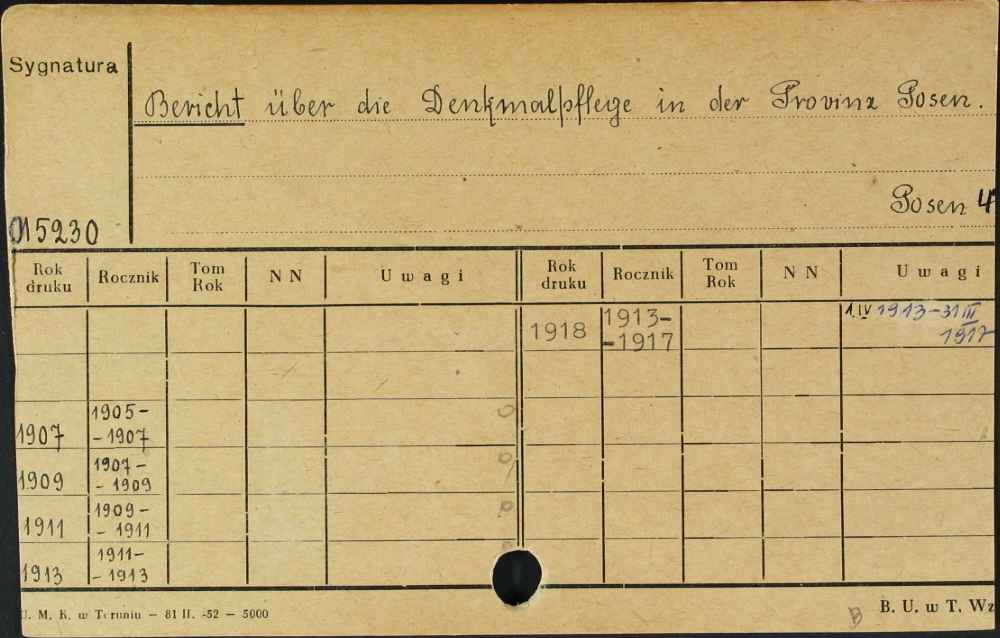 Sygnatura
Bericht über die Denkmalpflege in der Provinz Posen.
Posen 4
015230
Rok druku Rocznik Tom Rok N N Uwagi Rok druku Rocznik Tom Rok N N Uwagi
1918 1913-
-1917
1.IV 1913-31 III
1917
1907 1905-
-1907
1909 1907-
-1909
1911 1909-
-1911
1913 1911-
-1913
U. M. K. w Toruniu — 81 II. -52 — 5000
B
B. U. w T. Wz